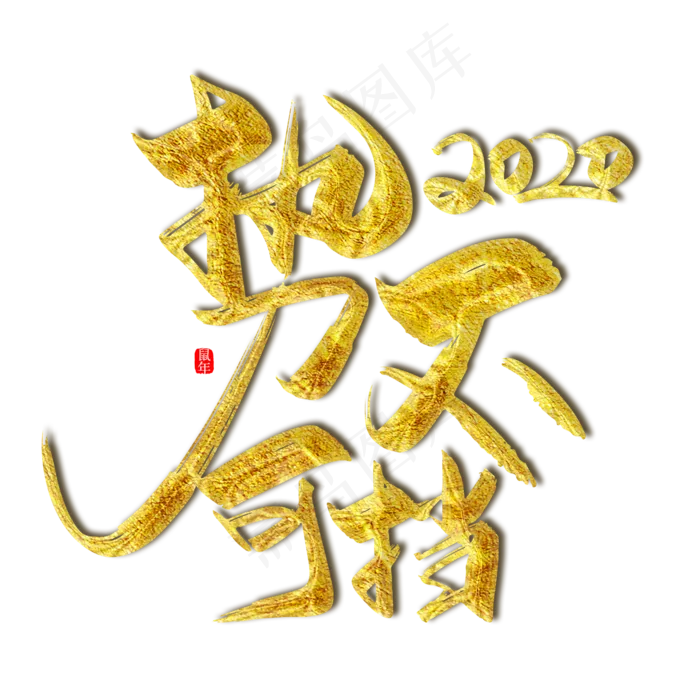 势不可挡
2020
鼠年